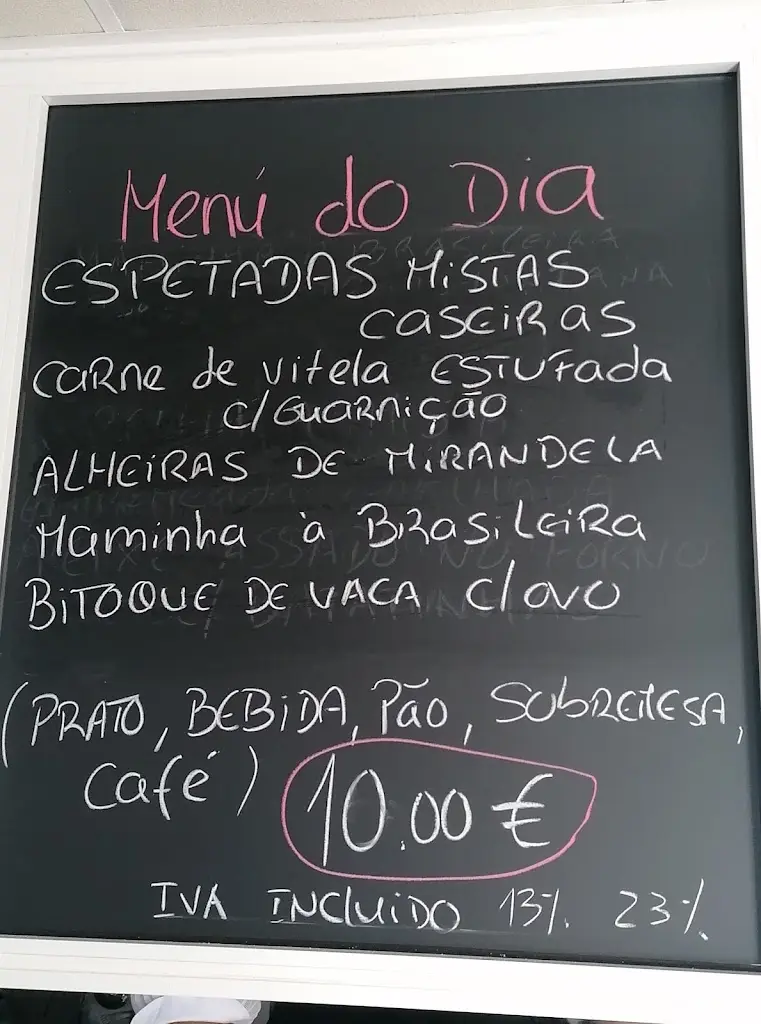 Menú do Dia
ESPETADAS MiSTAS
CASEiRAS
CARne de vitela ESTUFada
C/GUARNiÇÃO
ALHEiRAS DE MiRANDELA
Maminha à BRASiLEiRA
BiTOQUE DE VACA C/OVO
(PRATO, BEBiDA, Pão, SUbREMESA,
Café) 10.00 €
IVA INCLUiDO 13% 23%